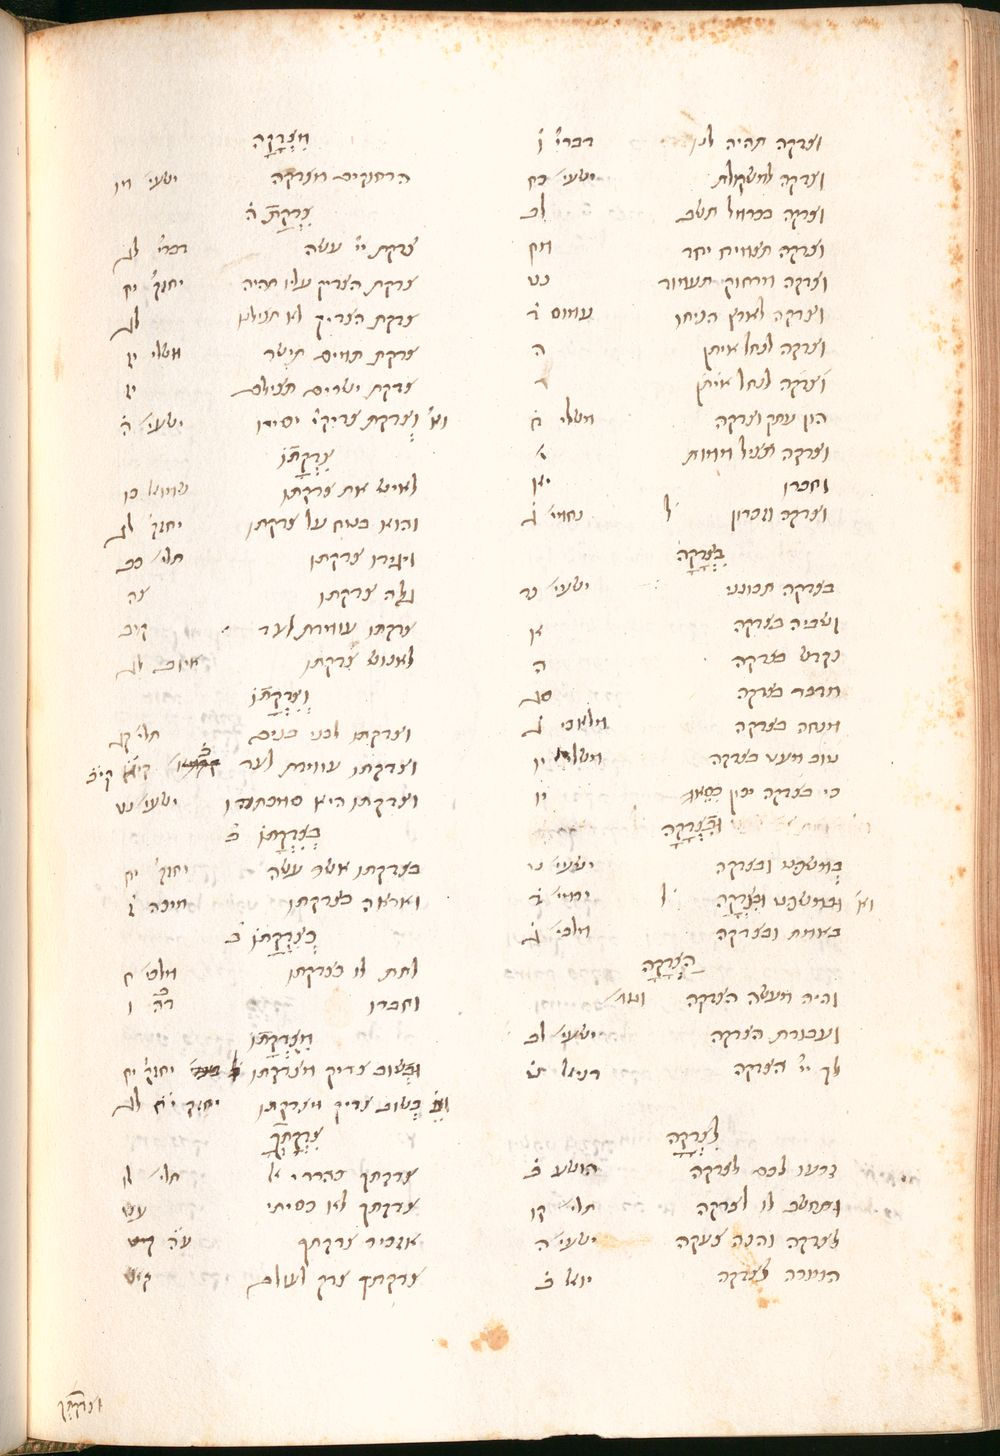 וצדקה תהיה לנו דברי' ו
וצדקה למשקלת ישעי' כח
וצדקה בכרמל תשב לב
וצדקה תצמיח יחד מה
וצדקה מרחוק תעמוד נט
וצדקה לארץ הניחו עמוס ה
וצדקה כנחל איתן ה
וצדקה כנחל איתן
הון עתק וצדקה משלי ח
וצדקה תציל ממות י
וחברו יא
וצדקה וזכרון ל נחמי' ב
בִּצְדָקָה
בצדקה תכונני ישעי' נד
ושביה בצדקה א
נקדש בצדקה ה
מדבר בצדקה סג
מנחה בצדקה מלאכי ג
טוב מעט בצדקה משלי יו
כי בצדקה יכון כסא יו
וּבִצְדָקָה
במשפט ובצדקה ישעי'
וא' ובמשפט ובצדקה ל ירמי' ד
באמת ובצדקה מלכי' ג
הַצְדָקָה
והיה מעשה הצדקה
ועבודת הצדקה ישעי' לב
לך יי' הצדקה דניאל ט
לִצְדָקָה
זרעו לכם לצדקה הושע
ותחשב לו לצדקה תלי' קו
לצדקה והנה צעקה ישעי' ה
המורה לצדקה יואל ב
מִצְדָקָה
הרחוקים מצדקה ישעי' מו
צִדְקַת ה
צדקת יי' עשה דברי' לג
צדקת הצדיק עליו תהיה יחזק' יח
צדקת הצדיק לא תצילנו לג
צדקת תמים תישר משלי יא
צדקת ישרים תצילם יא
וא' וצדקת צדיקי' יסירו ישעי' ה
צִדְקָתוֹ
לאיש את צדקתו שמואל כו
והוא בטח על צדקתו יחזק' לג
ויגידו צדקתו תלי' כב
גלה צדקתו צה
צדקתו עומדת לעד קיב
לאנוש צדקתו איוב לג
וְצִדְקָתוֹ
וצדקתו לבני בנים תלי' קג
וצדקתו עומדת לעד קיא קיב
וצדקתו היא סמכתהו ישעי' נט
בְּצִדְקָתוֹ ב
בצדקתו אשר עשה יחזק' יח
ואראה בצדקתו מיכה ז
כְּצִדְקָתוֹ ב
לתת לו כצדקתו מלכי' ח
וחברו ו
מִצִדְקָתוֹ
ובשוב צדיק מצדקתו יחזק' יח
וא' בשוב צדיק מצדקתו יחזק יח לג
צִדְקָתְךָ
צדקתך כהררי אל תלי' לו
צדקתך לא כסיתי
אזכיר צדקתך עא
צדקתך צדק לעולם קיט
וצדקתך